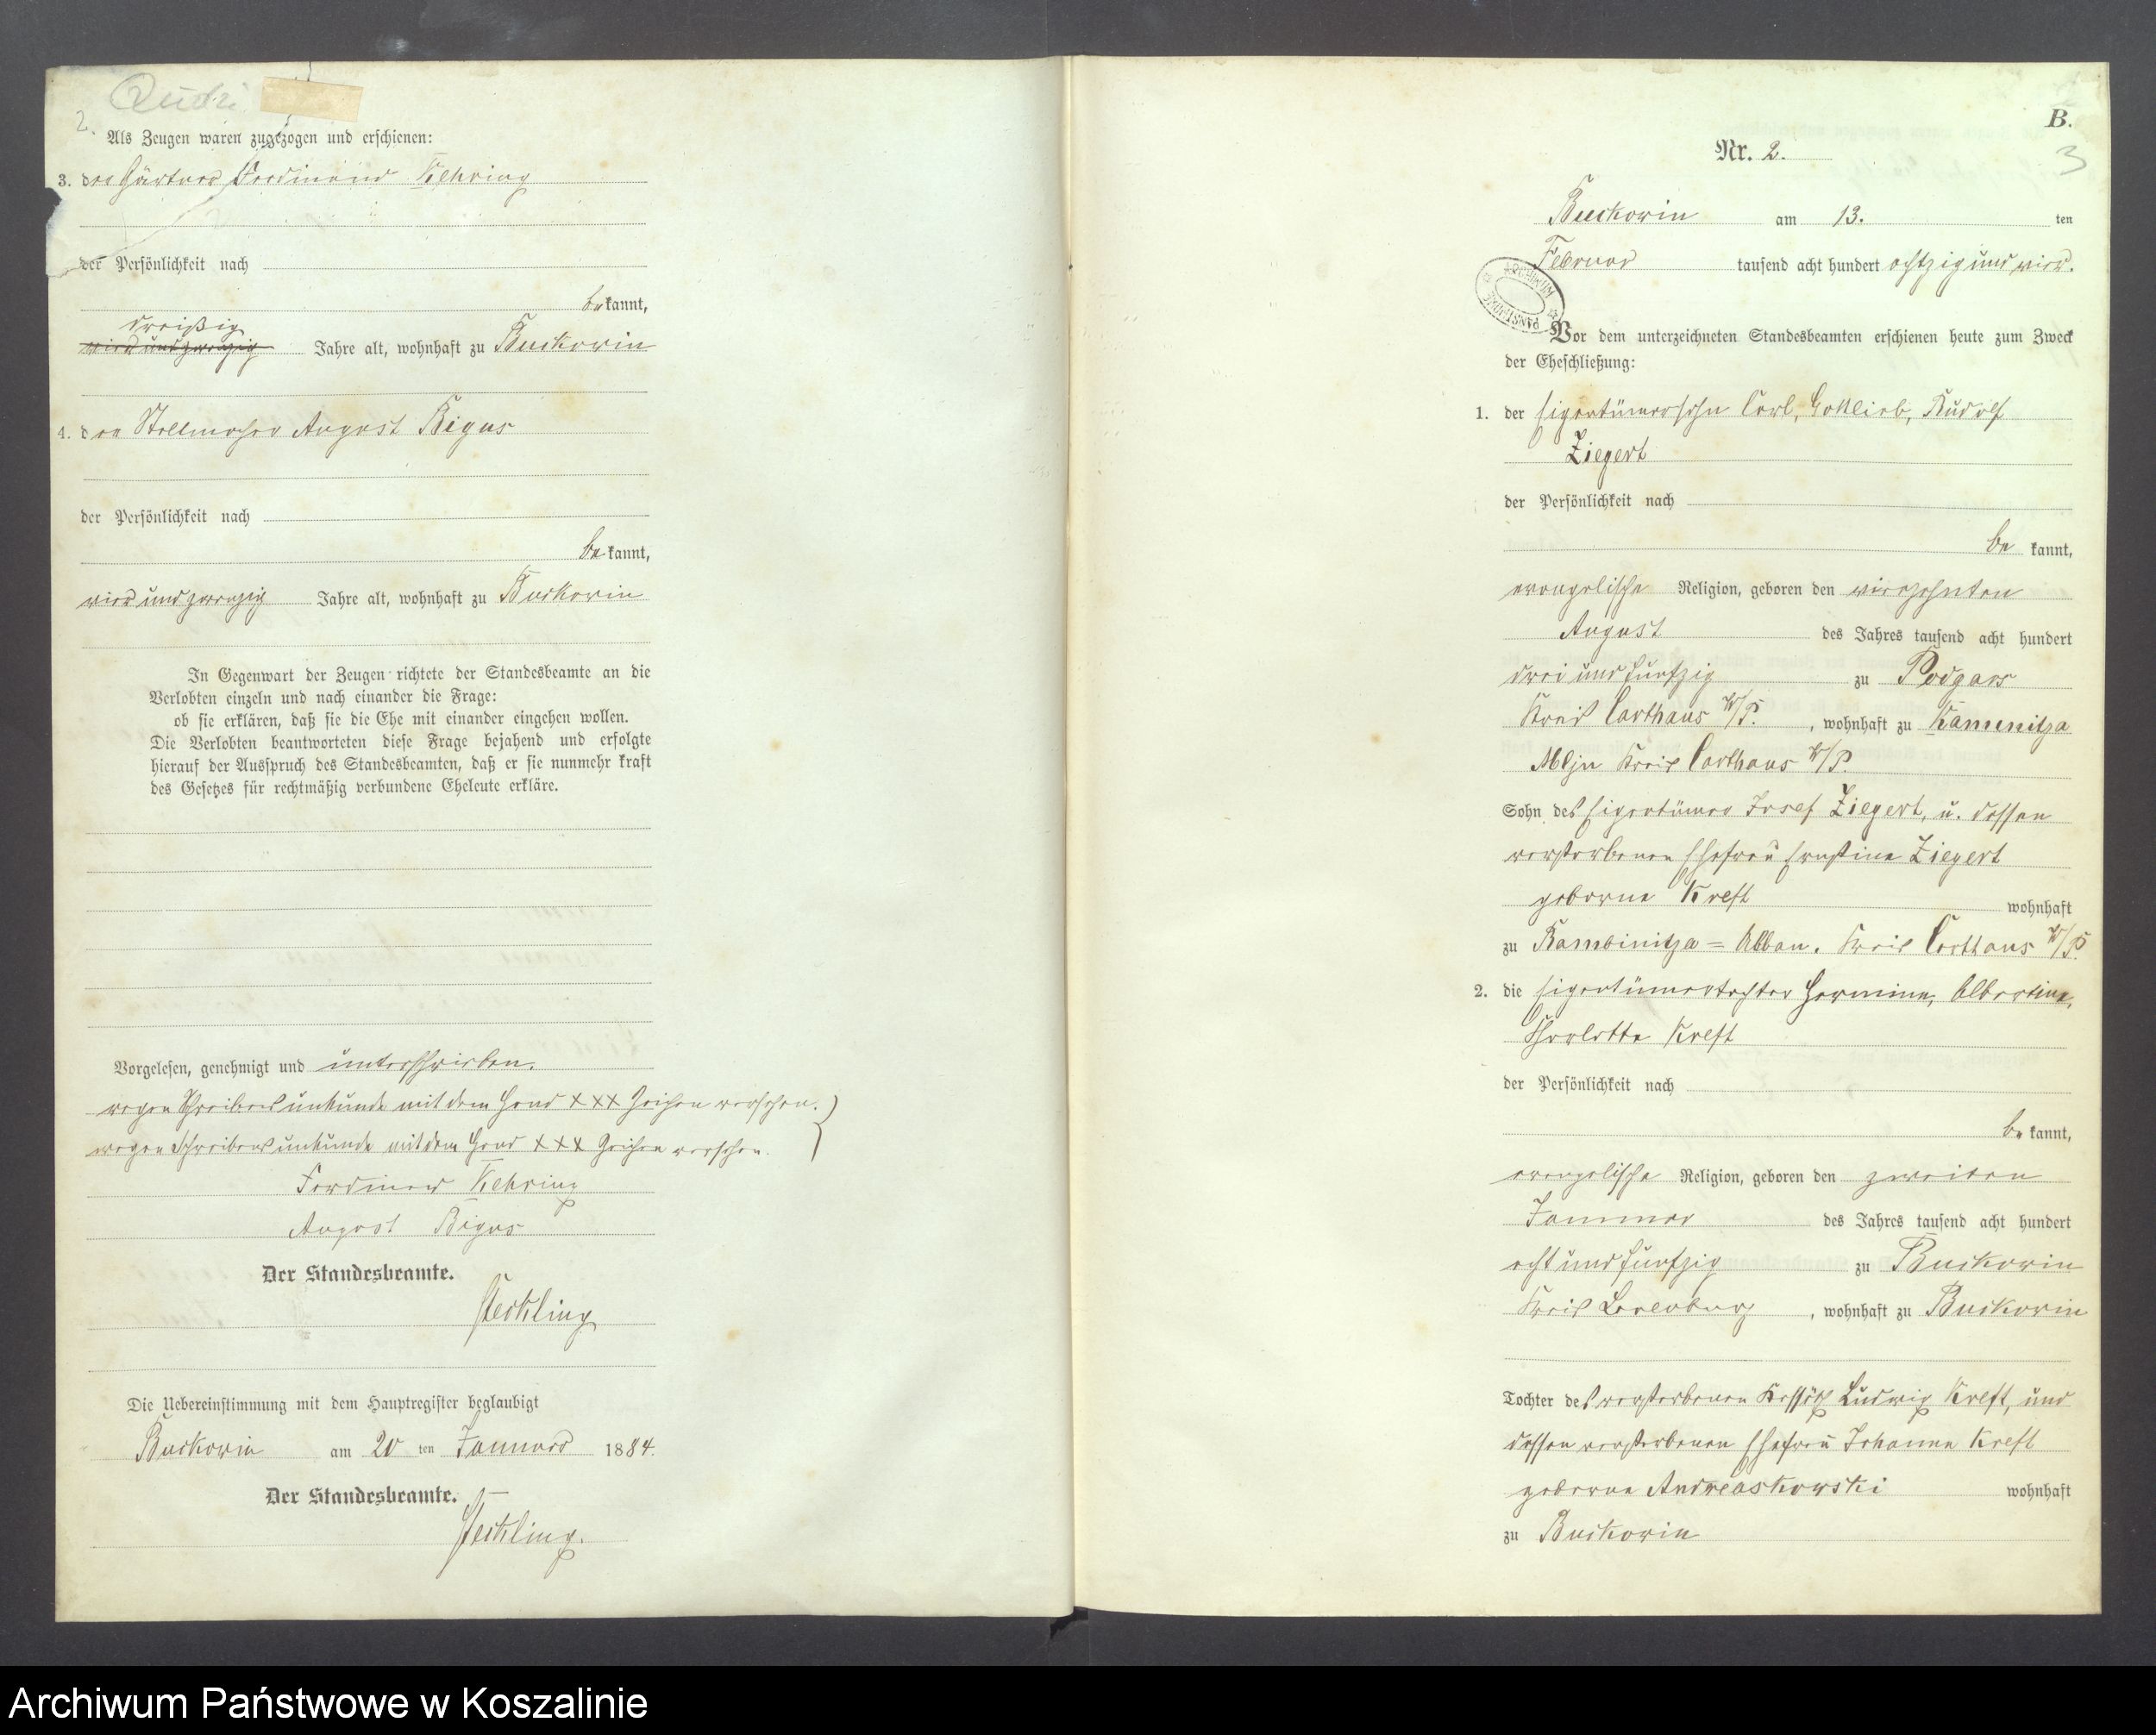 2.
Als Zeugen waren zugezogen und erschienen:
3. der Gärtner Ferdinand Kehring
der Persönlichkeit nach
be kannt,
dreißig
vier und zwanzig Jahre alt, wohnhaft zu Buckowin
4. der Stellmacher August Bigus
der Persönlichkeit nach
be kannt,
vier und zwanzig Jahre alt, wohnhaft zu Buckowin
In Gegenwart der Zeugen richtete der Standesbeamte an die
Verlobten einzeln und nach einander die Frage:
ob sie erklären, daß sie die Ehe mit einander eingehen wollen.
Die Verlobten beantworteten diese Frage bejahend und erfolgte
hierauf der Ausspruch des Standesbeamten, daß er sie nunmehr kraft
des Gesetzes für rechtmäßig verbundene Eheleute erkläre.
Vorgelesen, genehmigt und unterschrieben.
wegen Schreibens unkunde mit dem Hand XXX Zeichen versehen.
wegen Schreibens unkunde mit dem Hand XXX Zeichen versehen.
Ferdinand Kehring
August Bigus
Der Standesbeamte.
Die Uebereinstimmung mit dem Hauptregister beglaubigt
Buckowin am 20 ten Januar 1884.
Der Standesbeamte.
B.
Nr. 2.
3
Buckowin am 13. ten
Februar tausend acht hundert achtzig und vier.
ARCHIWUM PAŃSTWOWE
Vor dem unterzeichneten Standesbeamten erschienen heute zum Zweck
der Eheschließung:
1. der Eigentümersohn Carl, Gottlieb, Rudolf
Ziegert
der Persönlichkeit nach
be kannt,
evangelische Religion, geboren den vierzehnten
August des Jahres tausend acht hundert
drei und fünfzig zu Podgars
Kreis Carthaus W/P. , wohnhaft zu Kamenitza
Kreis Carthaus W/P.
Sohn des Eigentümer Josef Ziegert, u. dessen
verstorbenen Ehefrau Ernstine Ziegert
geborne Kreft wohnhaft
zu Kambinitza = Abbau. Kreis Carthaus W/P.
2. die Eigentümertochter Hermine, Albertine,
Charlotte Kreft
der Persönlichkeit nach
be kannt,
evangelische Religion, geboren den zweiten
Januar des Jahres tausend acht hundert
acht und fünfzig zu Buckowin
Kreis Lauenburg , wohnhaft zu Buckowin
Tochter des verstorbenen Ludwig Kreft, und
dessen verstorbenen Ehefrau Johanna Kreft
geborne Andreaskowski wohnhaft
zu Buckowin
Archiwum Państwowe w Koszalinie